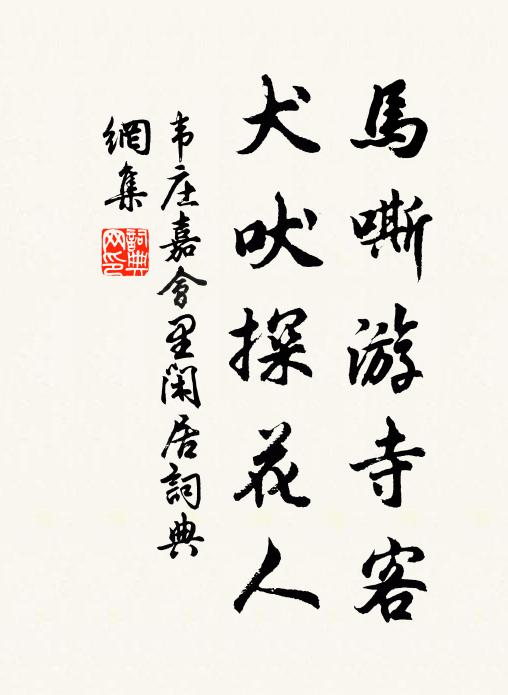 馬嘶游寺客
犬吠探花人
韦庄嘉會里闲居詞典
網集
詞典网印